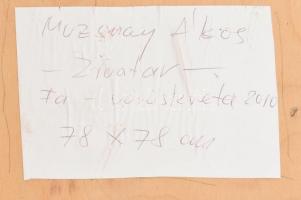 Muzsnay Ákos
- Zivatar -
Fa - vöröskréta 2010
78 x 78 cm